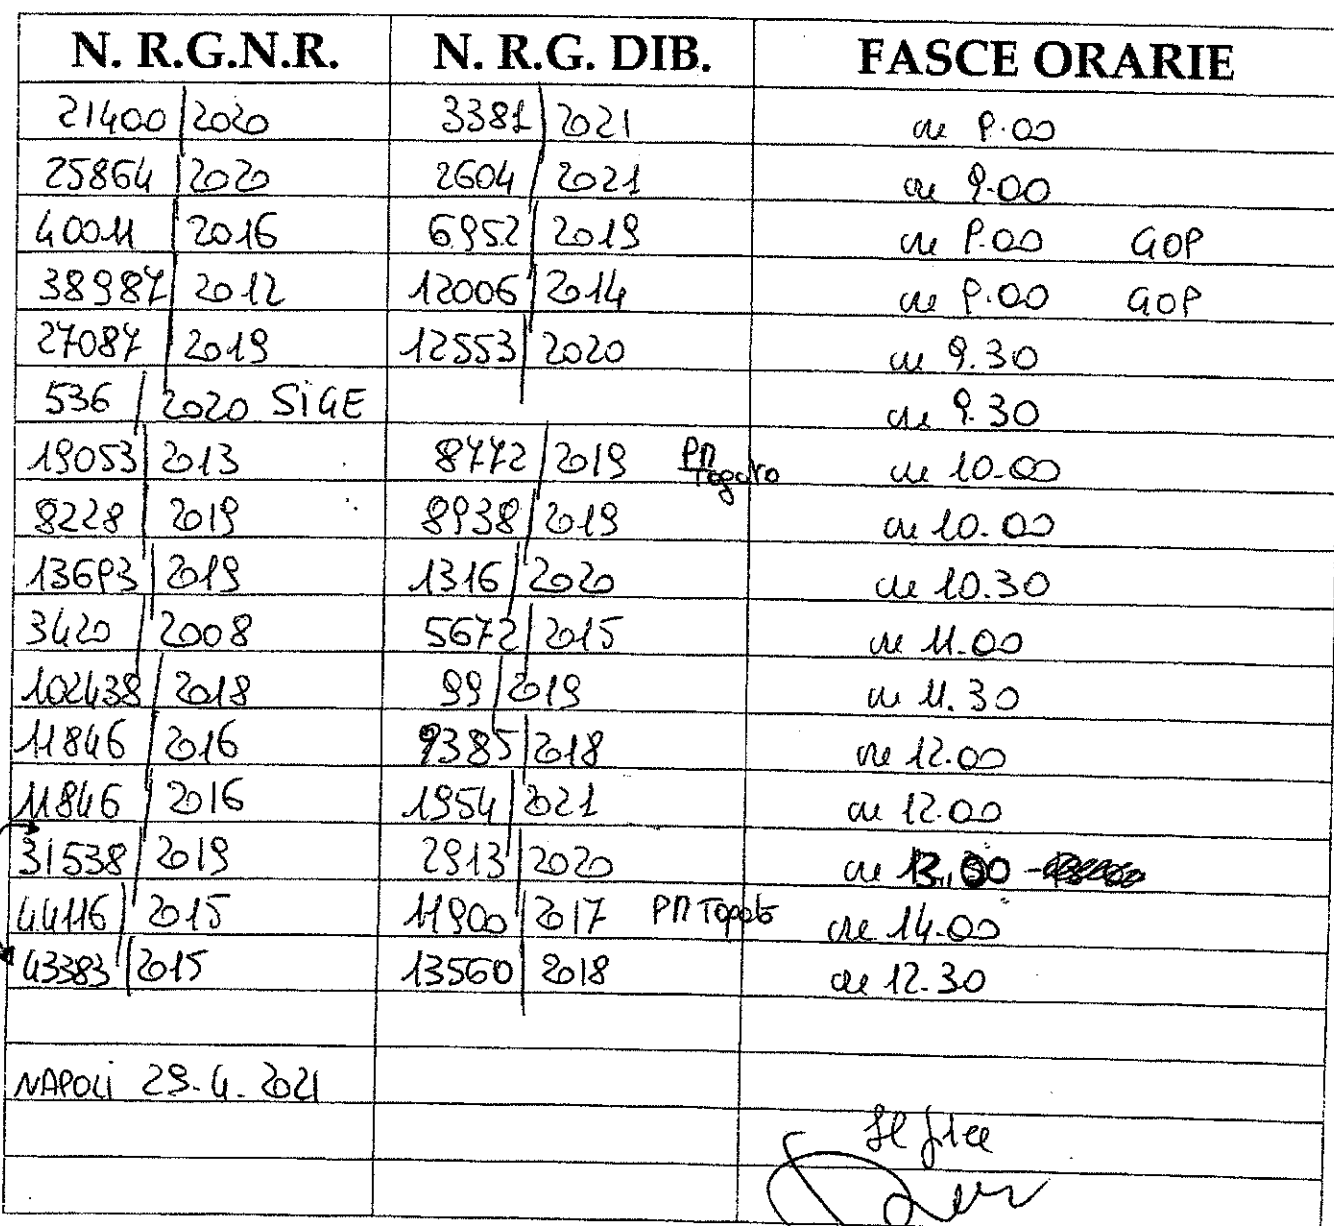 N. R.G.N.R. N. R.G. DIB. FASCE ORARIE
21400/2020 3381/2021 ore 9.00
25864/2020 2604/2021 ore 9.00
40011/2016 6952/2019 ore 9.00 GOP
38987/2012 12006/2014 ore 9.00 GOP
27087/2019 12553/2020 ore 9.30
536/2020 SIGE ore 9.30
19053/2013 8772/2019 PM Togato ore 10.00
8228/2019 8938/2019 ore 10.00
13693/2019 1316/2020 ore 10.30
3420/2008 5672/2015 ore 11.00
102438/2018 99/2019 ore 11.30
11846/2016 9385/2018 ore 12.00
11846/2016 1954/2021 ore 12.00
31538/2019 2913/2020 ore
44116/2015 11900/2017 PM Togato ore 14.00
43383/2015 13560/2018 ore 12.30
NAPOLI 29.4.2021
Il